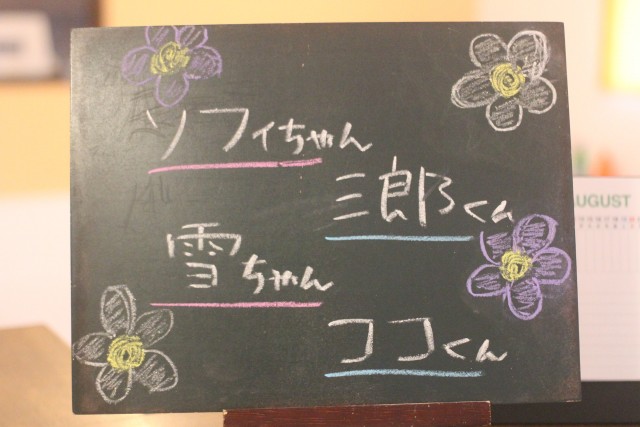 ソフィちゃん
三郎くん
雪ちゃん
ココくん
AUGUST